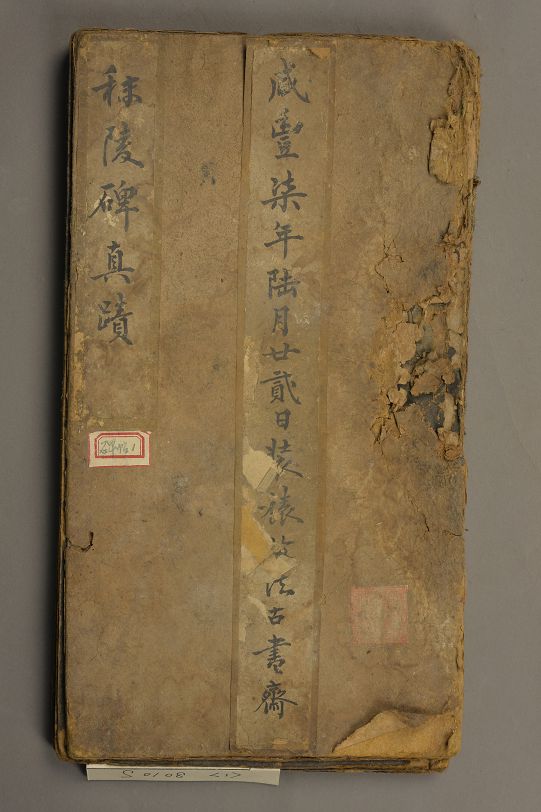 咸豐柒年陸月廿貳日裝裱於法古書齋
秣陵碑真蹟